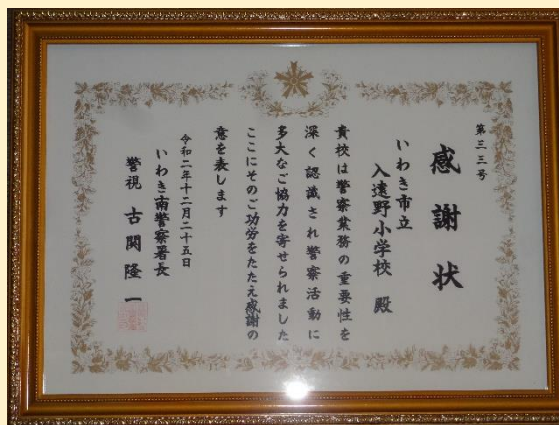 第三三号
感謝状
いわき市立
入遠野小学校 殿
貴校は警察業務の重要性を
深く認識され警察活動に
多大なご協力を寄せられました
ここにそのご功労をたたえ感謝の
意を表します
令和二年十二月二十五日
いわき南警察署長
警視 古関隆一